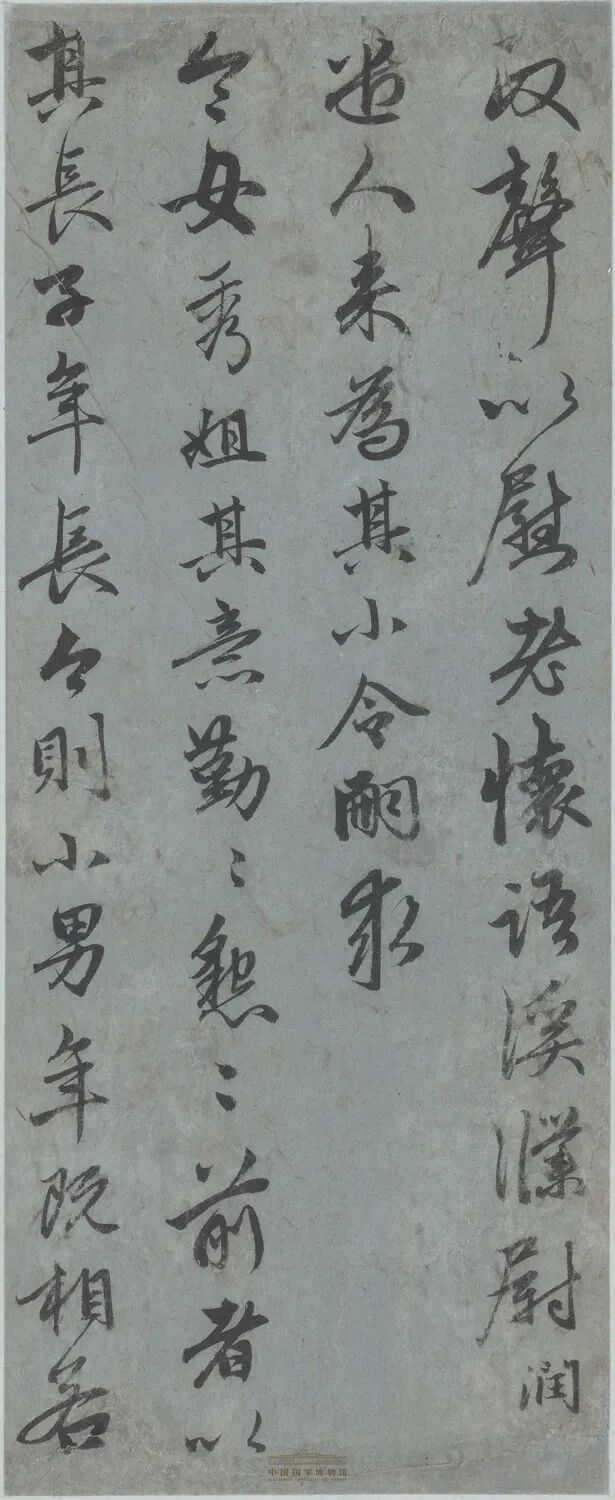 政聲以慰老懷語溪濮尉潤
遣人來為其小令嗣求
令女秀姐其意勤〻懇〻前者以
其長子年長今則小男年既相若
中国国家博物馆